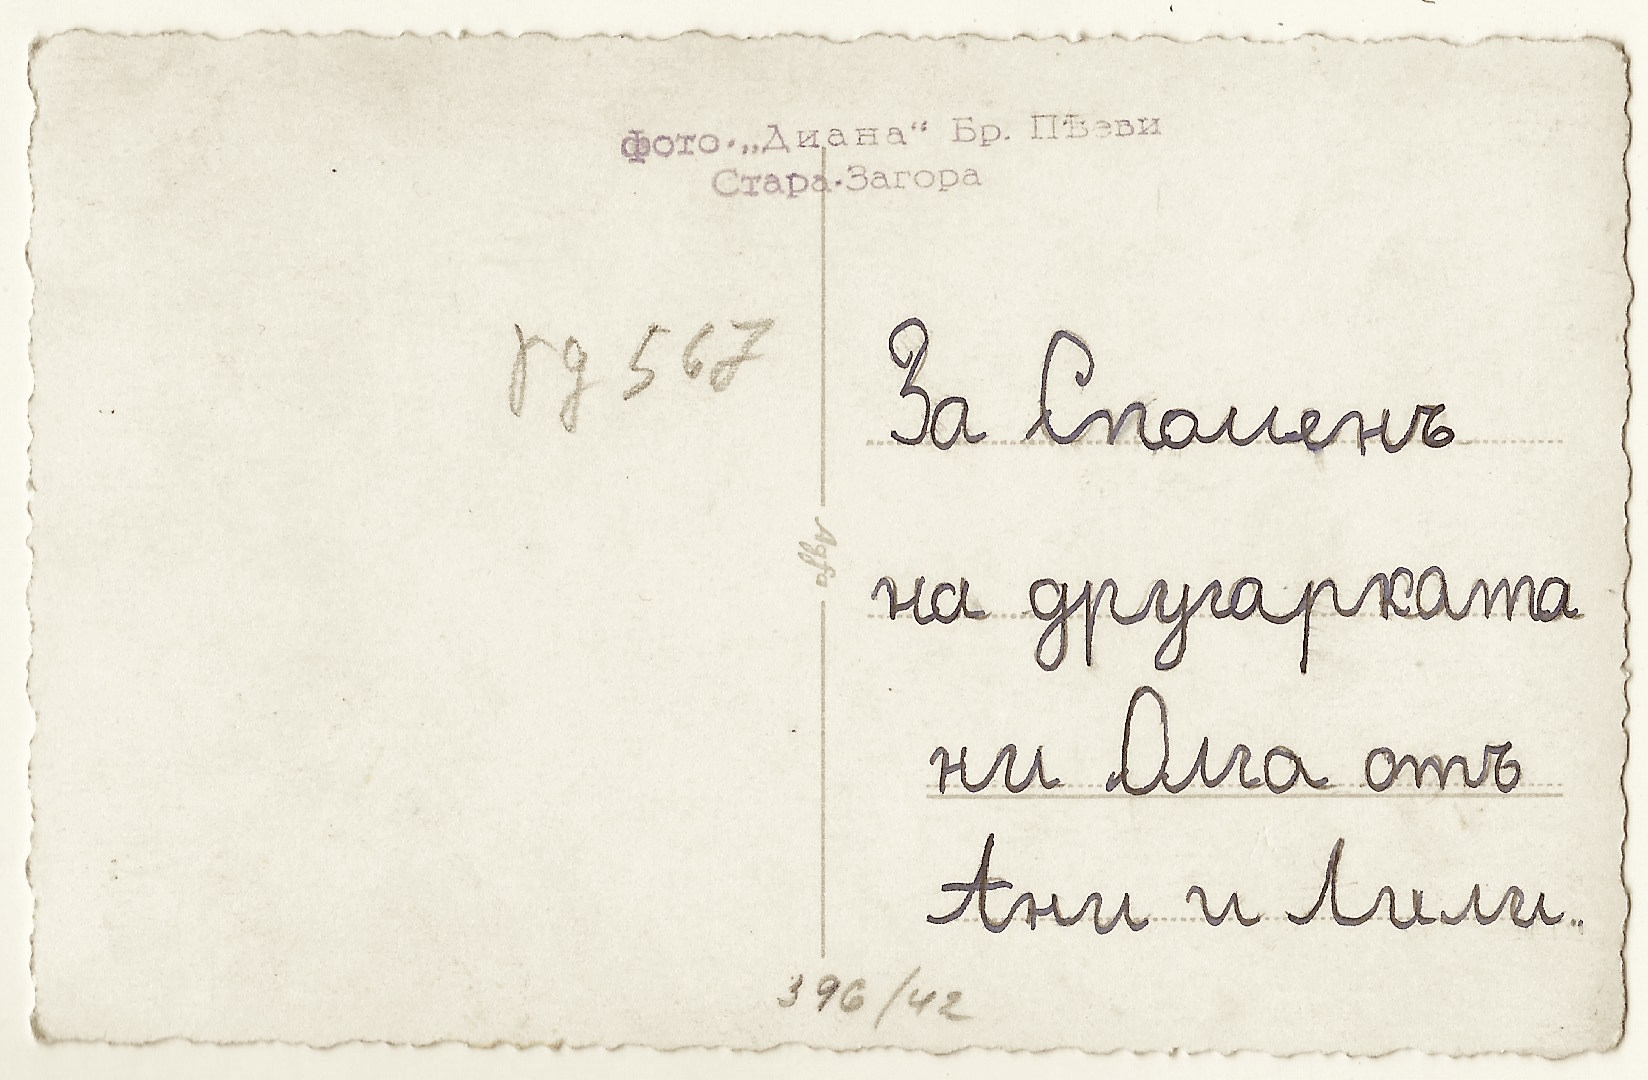 Фото „Диана“ Бр. Пѣеви
Стара-Загора
567
За Споменъ
на другарката
ни Олга отъ
Ани и Лили.
Agfa
396/42